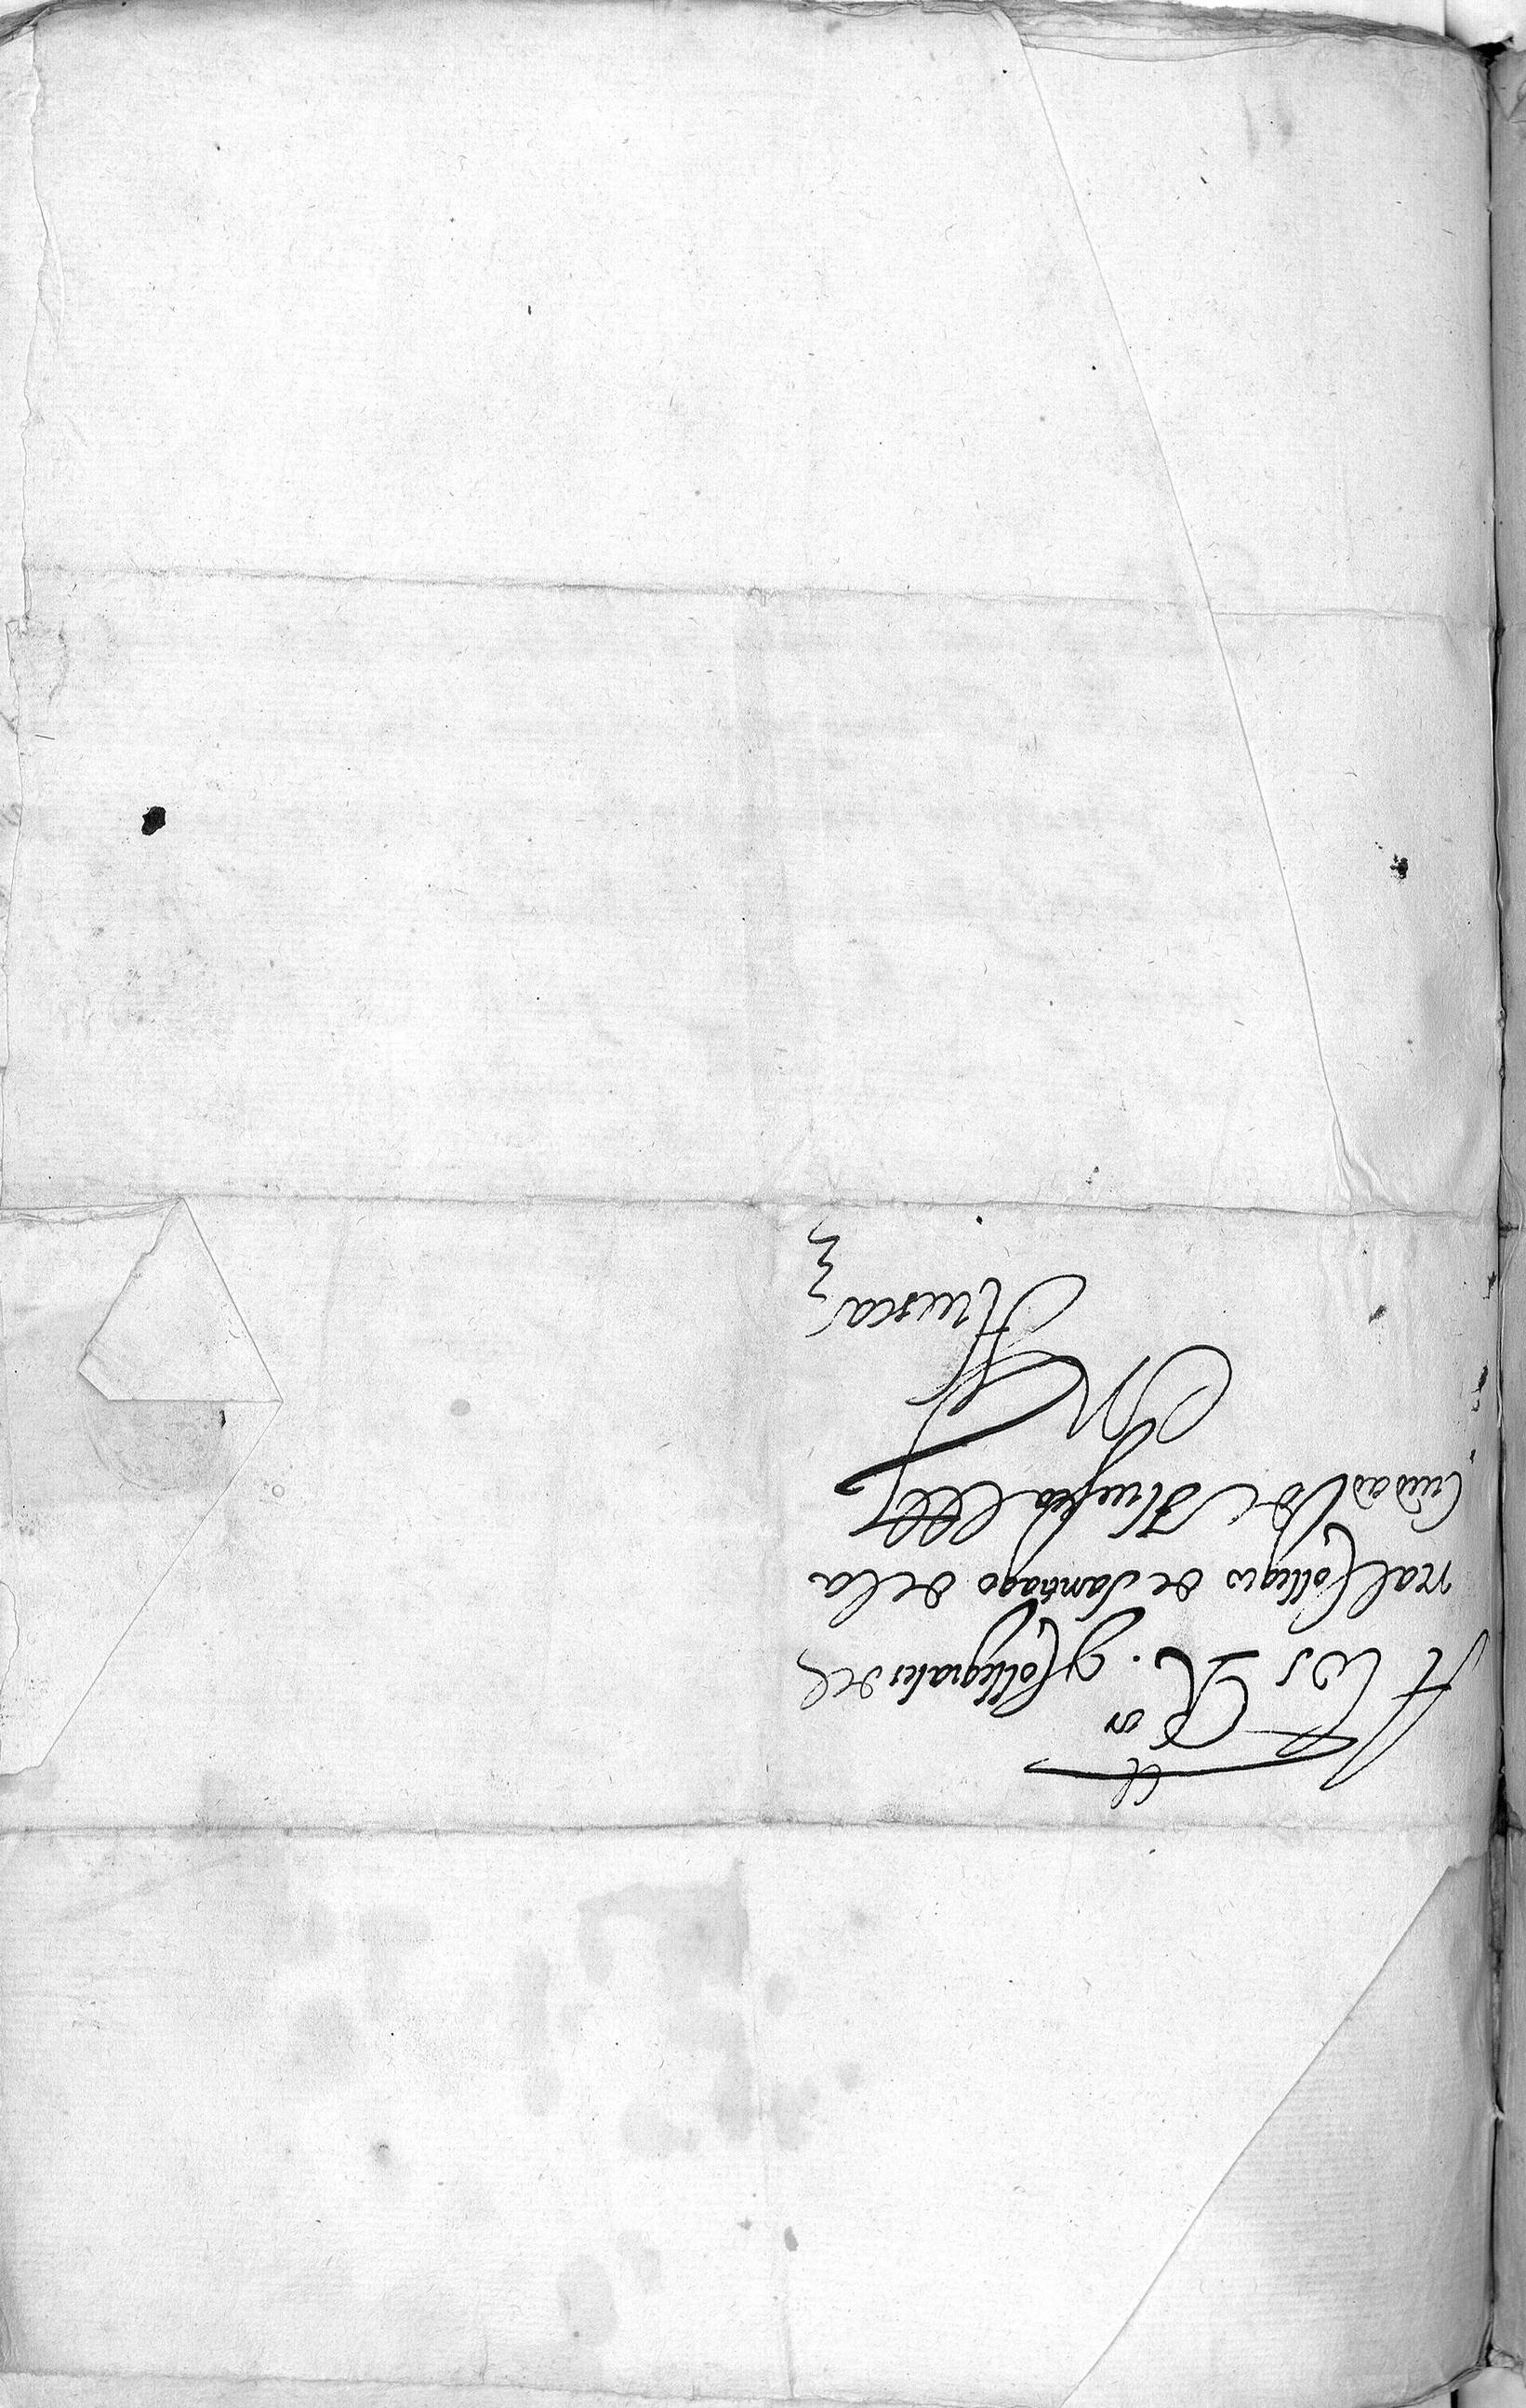 A los R.or y Collegiales del
real Collegio de Santiago de la
Ciudad de Huesca
Huesca